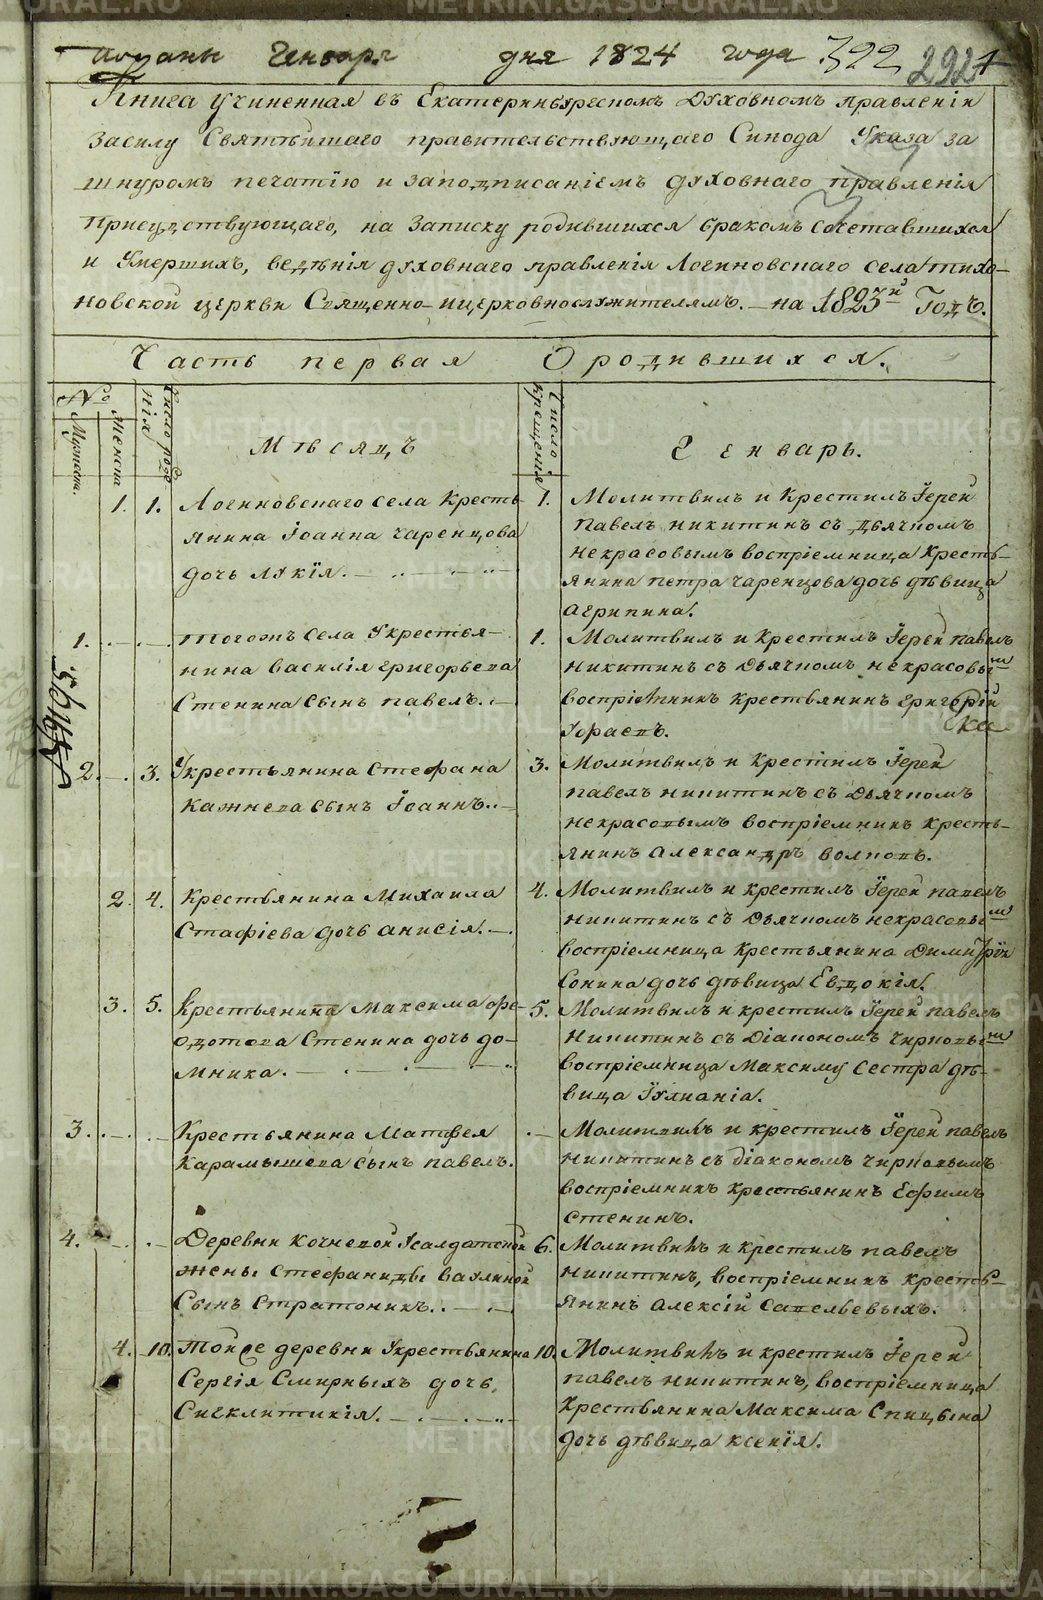 поданы Генваря дня 1824 года 322 292 1
Книга учиненная въ Екатеринбургскомъ духовномъ правленіи
засилу Святѣйшаго правительствующаго Синода Указа за
шнуромъ печатїю и заподписаніемъ духовнаго правленія
присудствующаго, на записку родившихся бракомъ сочетавшихся
и умершихъ, ведѣнія духовнаго правленія Логиновскаго села тихо-
новской церкви Священно-ицерковнослужителямъ. на 1823й Годъ.
Часть первая О родившихся.
№
Мужеска.
Женска
Число рожденія
Мѣсяцъ
Число крещенія
Генварь.
1. 1. Логиновскаго села Кресть-
янина Іоанна Чаренцова
дочь Лукїя.
1. Молитвилъ и Крестилъ Іерей
Павелъ никитинъ съ дьячкомъ
некрасовымъ воспріемница кресть-
янина петра чаренцова дочь дѣвица
агрипина.
1. тогожъ села Укрестья-
нина василія григорьева
Стенина сынъ павелъ.
1. Молитвилъ и крестилъ Іерей павелъ
никитинъ съ дьячкомъ некрасовым
воспріемникъ крестьянинъ григорій
2. 3. Укрестьянина стефана
сынъ Іоаннъ.
3. Молитвилъ и крестилъ Іерей
павелъ никитинъ съ дьячкомъ
некрасовымъ воспріемникъ кресть-
янинъ александръ волковъ.
2. 4. крестьянина Михаила
Стафіева дочь анисія.
4. Молитвилъ и крестилъ Іерей павелъ
никитинъ съ дьячкомъ некрасовым
воспріемница крестьянина Димитрія
Сонина дочь дѣвица Евдокія.
3. 5. крестьянина максима фе-
дотова Стенина дочь до-
мника.
5. Молитвилъ и крестилъ Іерей павелъ
никитинъ съ діакономъ чирковым
воспріемница Максиму сестра дѣ-
вица Іуліанія.
3. Крестьянина Матфея
карамышева сынъ павелъ.
Молитвилъ и крестилъ Іерей павелъ
никитинъ съ діакономъ чирковымъ
воспріемникъ крестьянинъ Ефимъ
стенинъ.
4. Деревни кочневой Усалдатской
жены стефаниды ваулиной
Сынъ стратоникъ.
6. Молитвилъ и крестилъ павелъ
никитинъ, воспріемникъ кресть-
янинъ алексій савельевыхъ.
4. 10. тойже деревни Укрестьянина
Сергія Смирныхъ дочь,
Сигклитикія.
10. Молитвилъ и крестилъ Іерей
павелъ никитинъ, воспріемница
крестьянина Максима Спицына
дочь дѣвица ксенїя.
METRIKI.GASO-URAL.RU